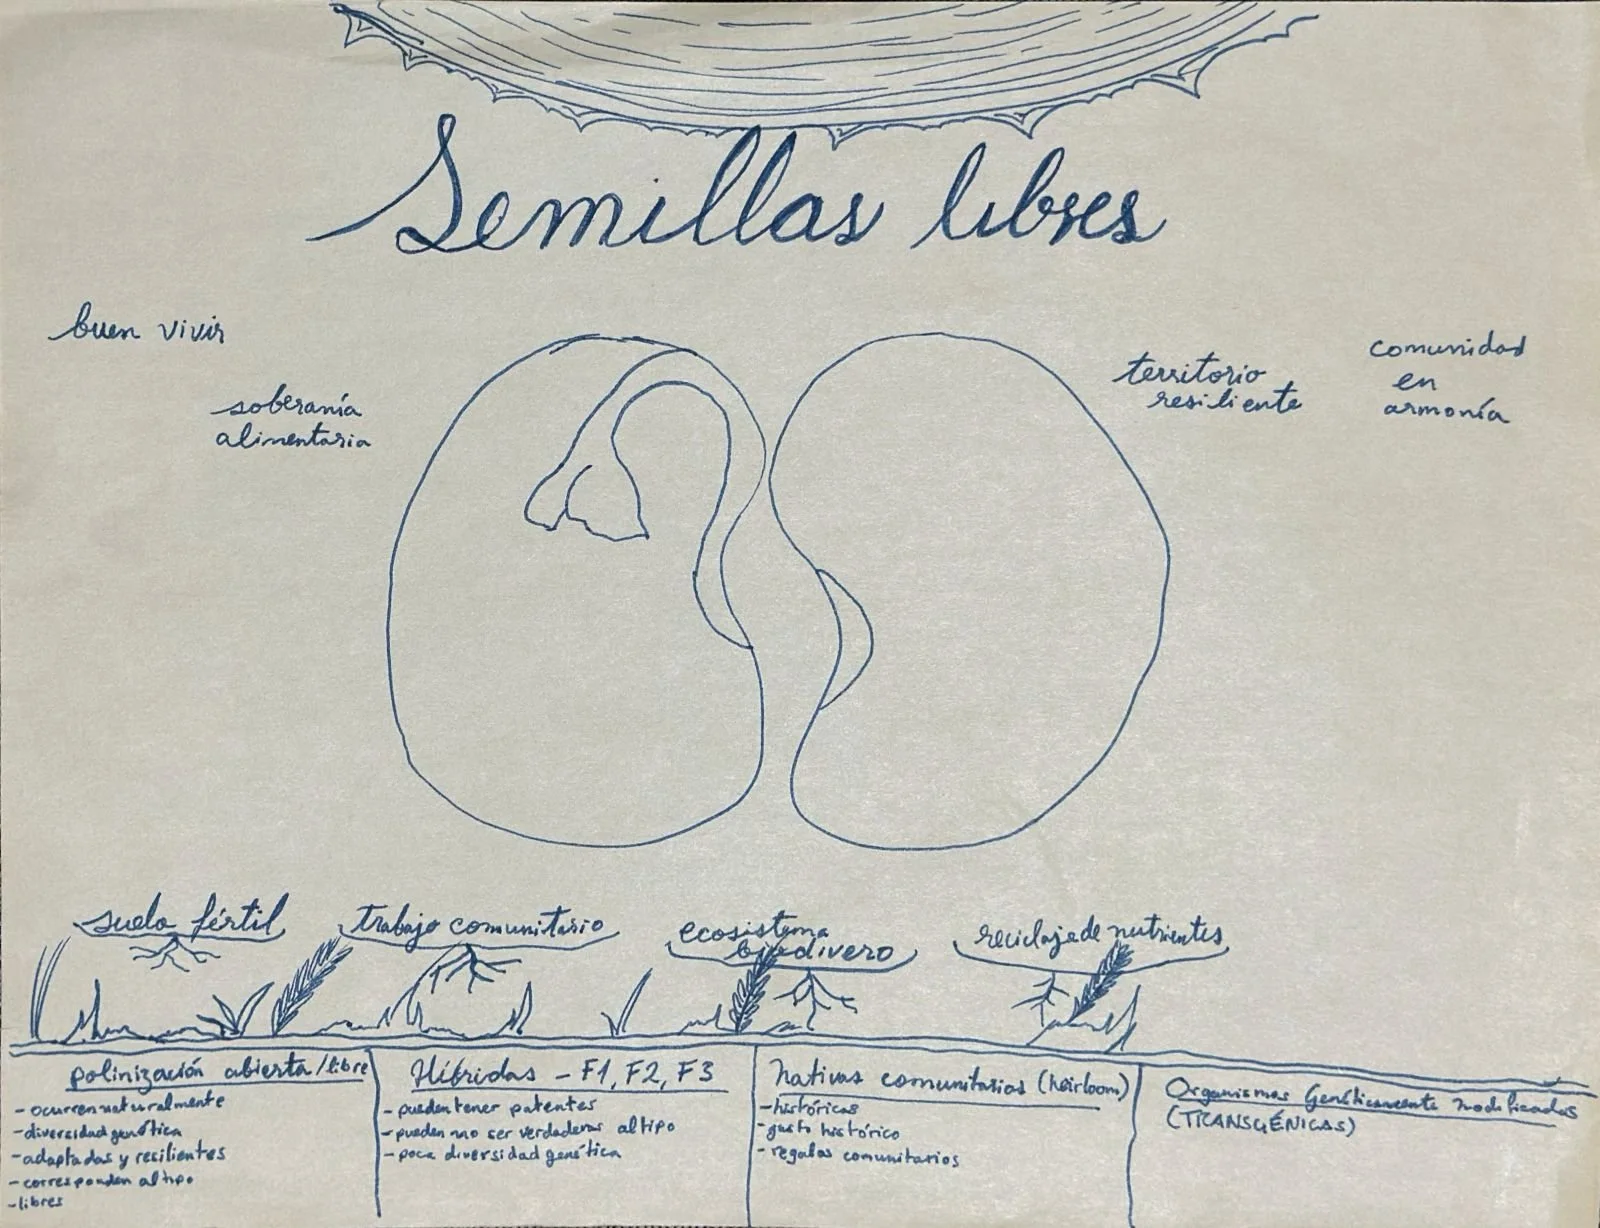 Semillas libres
buen vivir
soberanía
alimentaria
territorio
resiliente
comunidad
en
armonía
suelo fértil
trabajo comunitario
ecosistema
biodivero
reciclaje de nutrientes
polinización abierta/libre
- ocurren naturalmente
- diversidad genética
- adaptadas y resilientes
- corresponden al tipo
- libres
Híbridas - F1, F2, F3
- pueden tener patentes
- pueden no ser verdaderas al tipo
- poca diversidad genética
Nativas comunitarias (heirloom)
- históricas
- gusto histórico
- regalos comunitarios
Organismos Genéticamente modificados
(TRANSGÉNICAS)